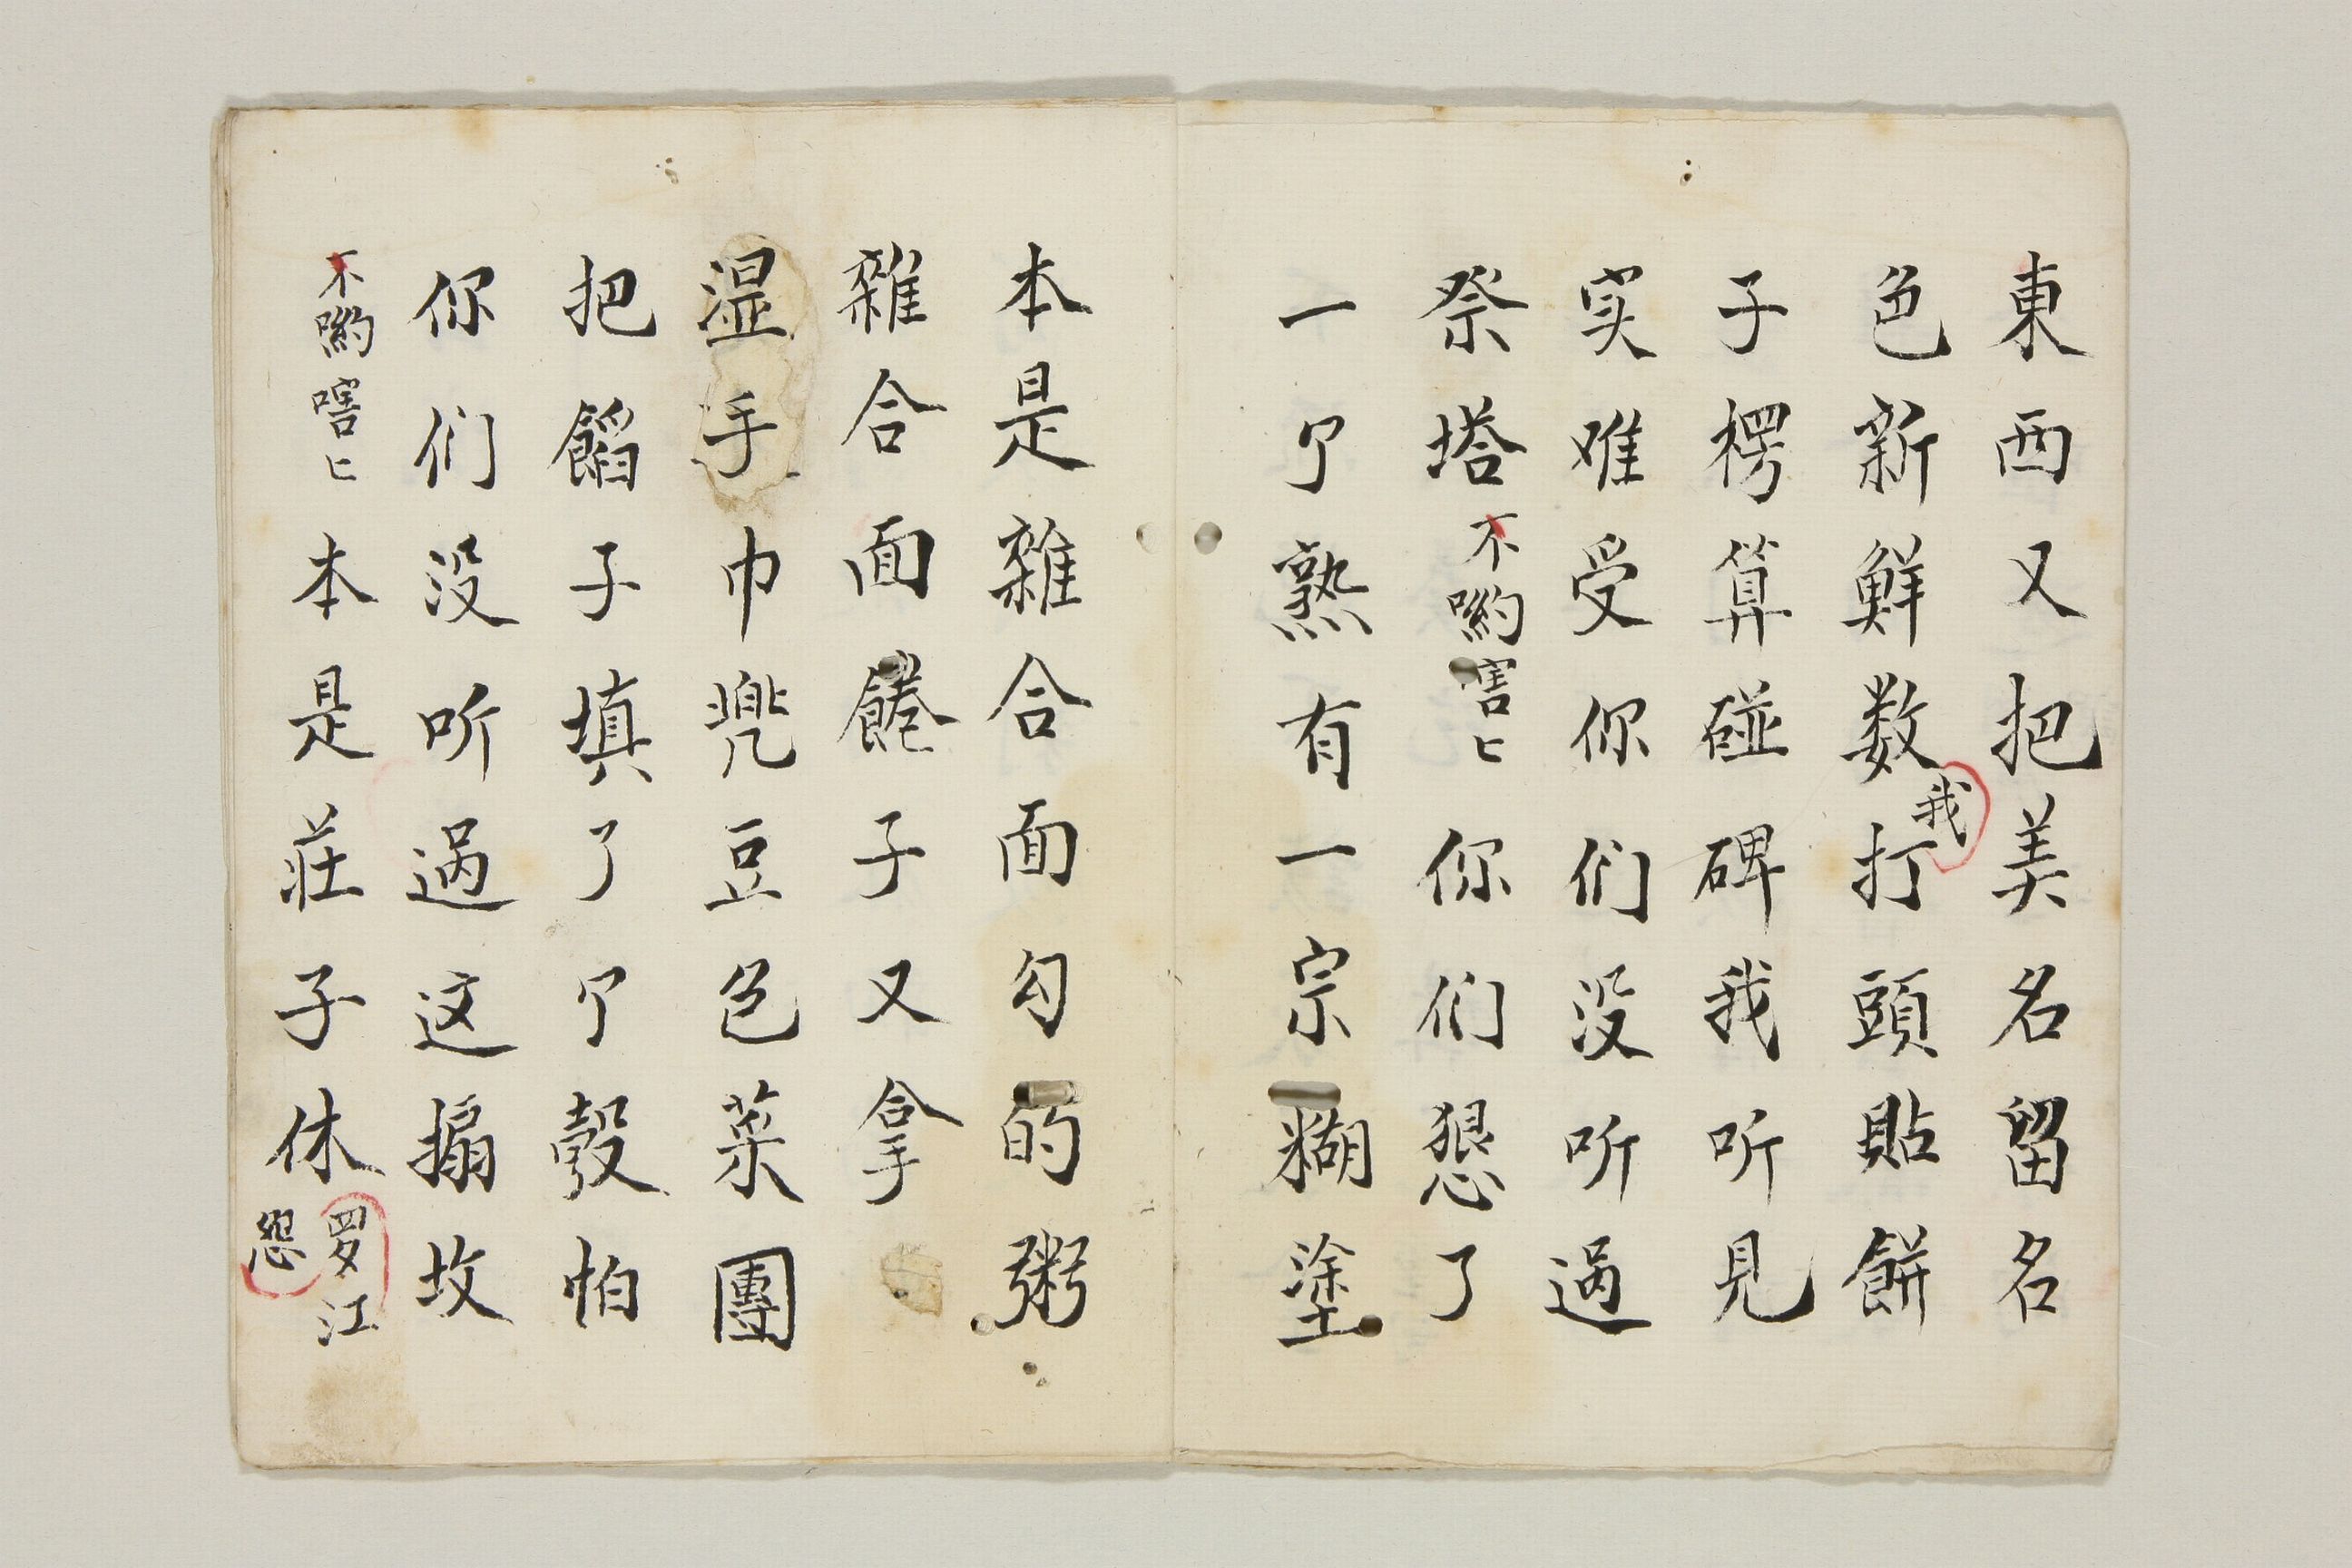 東西又把美名留名
色新鮮数我打頭貼餅
子楞算碰碑我听見
实难受你们没听過
祭塔不喲害匕你们狠了
一个熟有一宗糊塗
本是雜合面勾的粥
雜合面餑子又拿
湿手巾兠豆色菜團
把餡子填了个殻怕
你们没听過这搨坟
不喲嗐匕本是莊子休罗江怨